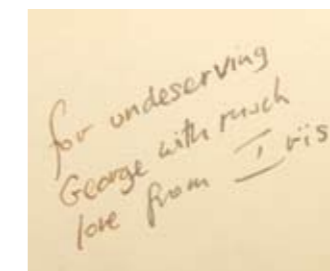 for undeserving
George with much
love from Iris